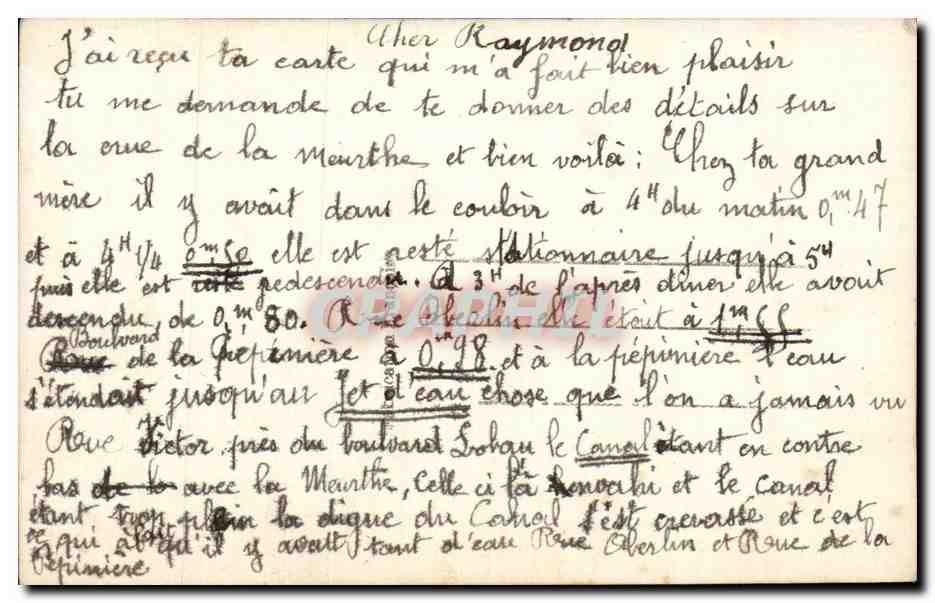 Cher Raymond
J'ai reçu ta carte qui m'a fait bien plaisir
tu me demande de te donner des détails sur
la crue de la Meurthe et bien voilà : Chez ta grand
mère il y avait dans le couloir à 4H du matin 0,m 47
et à 4H 1/4 0m,50 elle est resté stationnaire jusqu'à 5H
puis elle est resté redescendu. à 3H de l'après diner elle avait
descendu, de 0,m 80. Rue Oberlin elle était à 1m,55
Boulvard
Rue de la Pépinière à 0m,98. et à la pépinière l'eau
s'étendait jusqu'au Jet d'eau chose que l'on a jamais vu
Rue Victor près du boulvard Lobau le Canal étant en contre
bas de la avec la Meurthe, Celle ci l'à envahi et le canal
étant trop plein la digue du Canal s'est crevassé et c'est
ce qui à fait qu'il y avait tant d'eau Rue Oberlin et Rue de la
Pépinière